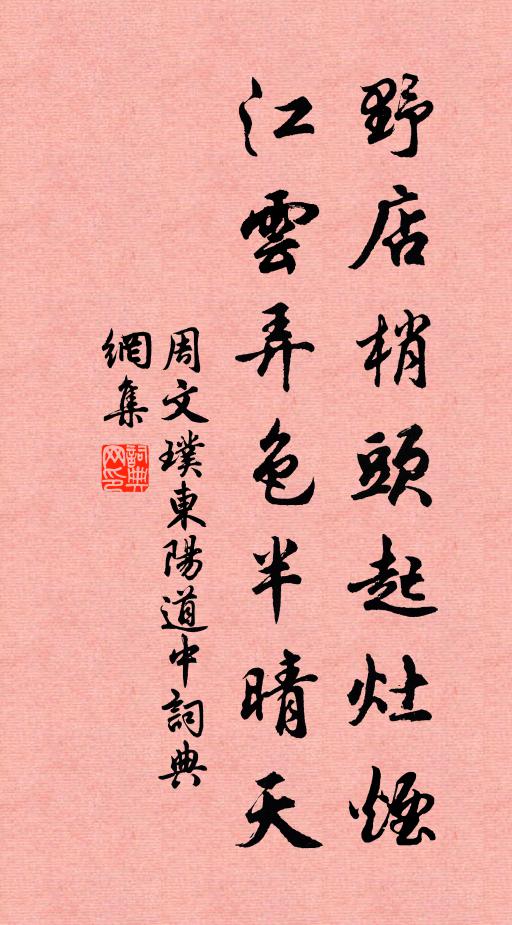 野店梢頭起灶煙
江雲弄色半晴天
周文璞東陽道中詞典
網集
詞典
网印